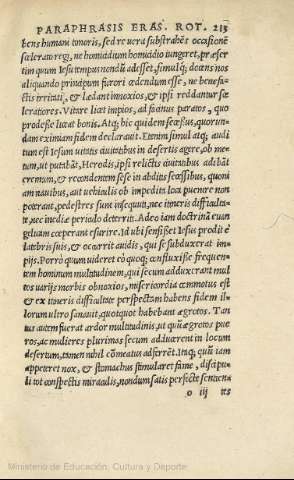 PARAPHRASIS ERAS. ROT. 213
bens humani timoris, sed re uera substrahẽs occasionẽ
sceleratoregi, ne homicidium homicidio iungeret, præser
tim quum Iesu tempus nondũ adesset, simulq; docens nos
aliquando principum furori cædendum esse, ne benefa
ctis irritati, & lædant innoxios, & ipsi reddantur sce
leratores. Vitare licet impios, ad sanius paratos, quo
prodesse liceat bonis. Atq; hic quidem secessus, quorun
dam eximiam fidem declarauit. Etenim simul atq; audi
tum est Iesum uitatis ciuitatibus in desertis agere, ob me
tum, ut putabãt, Herodis, ipsi relictis ciuitatibus adibãt
eremum, & recondentem sese in abditis secessibus, quoni
am nauibus, aut uehiculis ob impedita loca peruenire non
poterant, pedestres sunt insequuti, nec itineris difficulta
te, nec inediæ periculo deterriti. Adeo iam doctrinã euan
gelicam cœperant esurire. Id ubi sensisset Iesus prodit è
latebris suis, & occurrit auidis, qui se subduxerat im
pijs. Porrò quum uideret eò quoq; confluxisse frequen
tem hominum multitudinem, qui secum adduxerant mul
tos uarijs morbis obnoxios, misericordia commotus est
& ex itineris difficultate perspectam habens fidem il
lorum ultro sanauit, quotquot habebant ægrotos. Tan
tus autem fuerat ardor multitudinis, ut quũ ægrotos pue
ros, ac mulieres plurimas secum adducerent in locum
desertum, tamen nihil cõmeatus adferrẽt. Inq; quũ iam
appeteret nox, & stomachus stimularet fame, discipu
li tot conspectis miraculis, nondum satis perfecte sentien
o iij tes
Ministerio de Educación, Cultura y Deporte